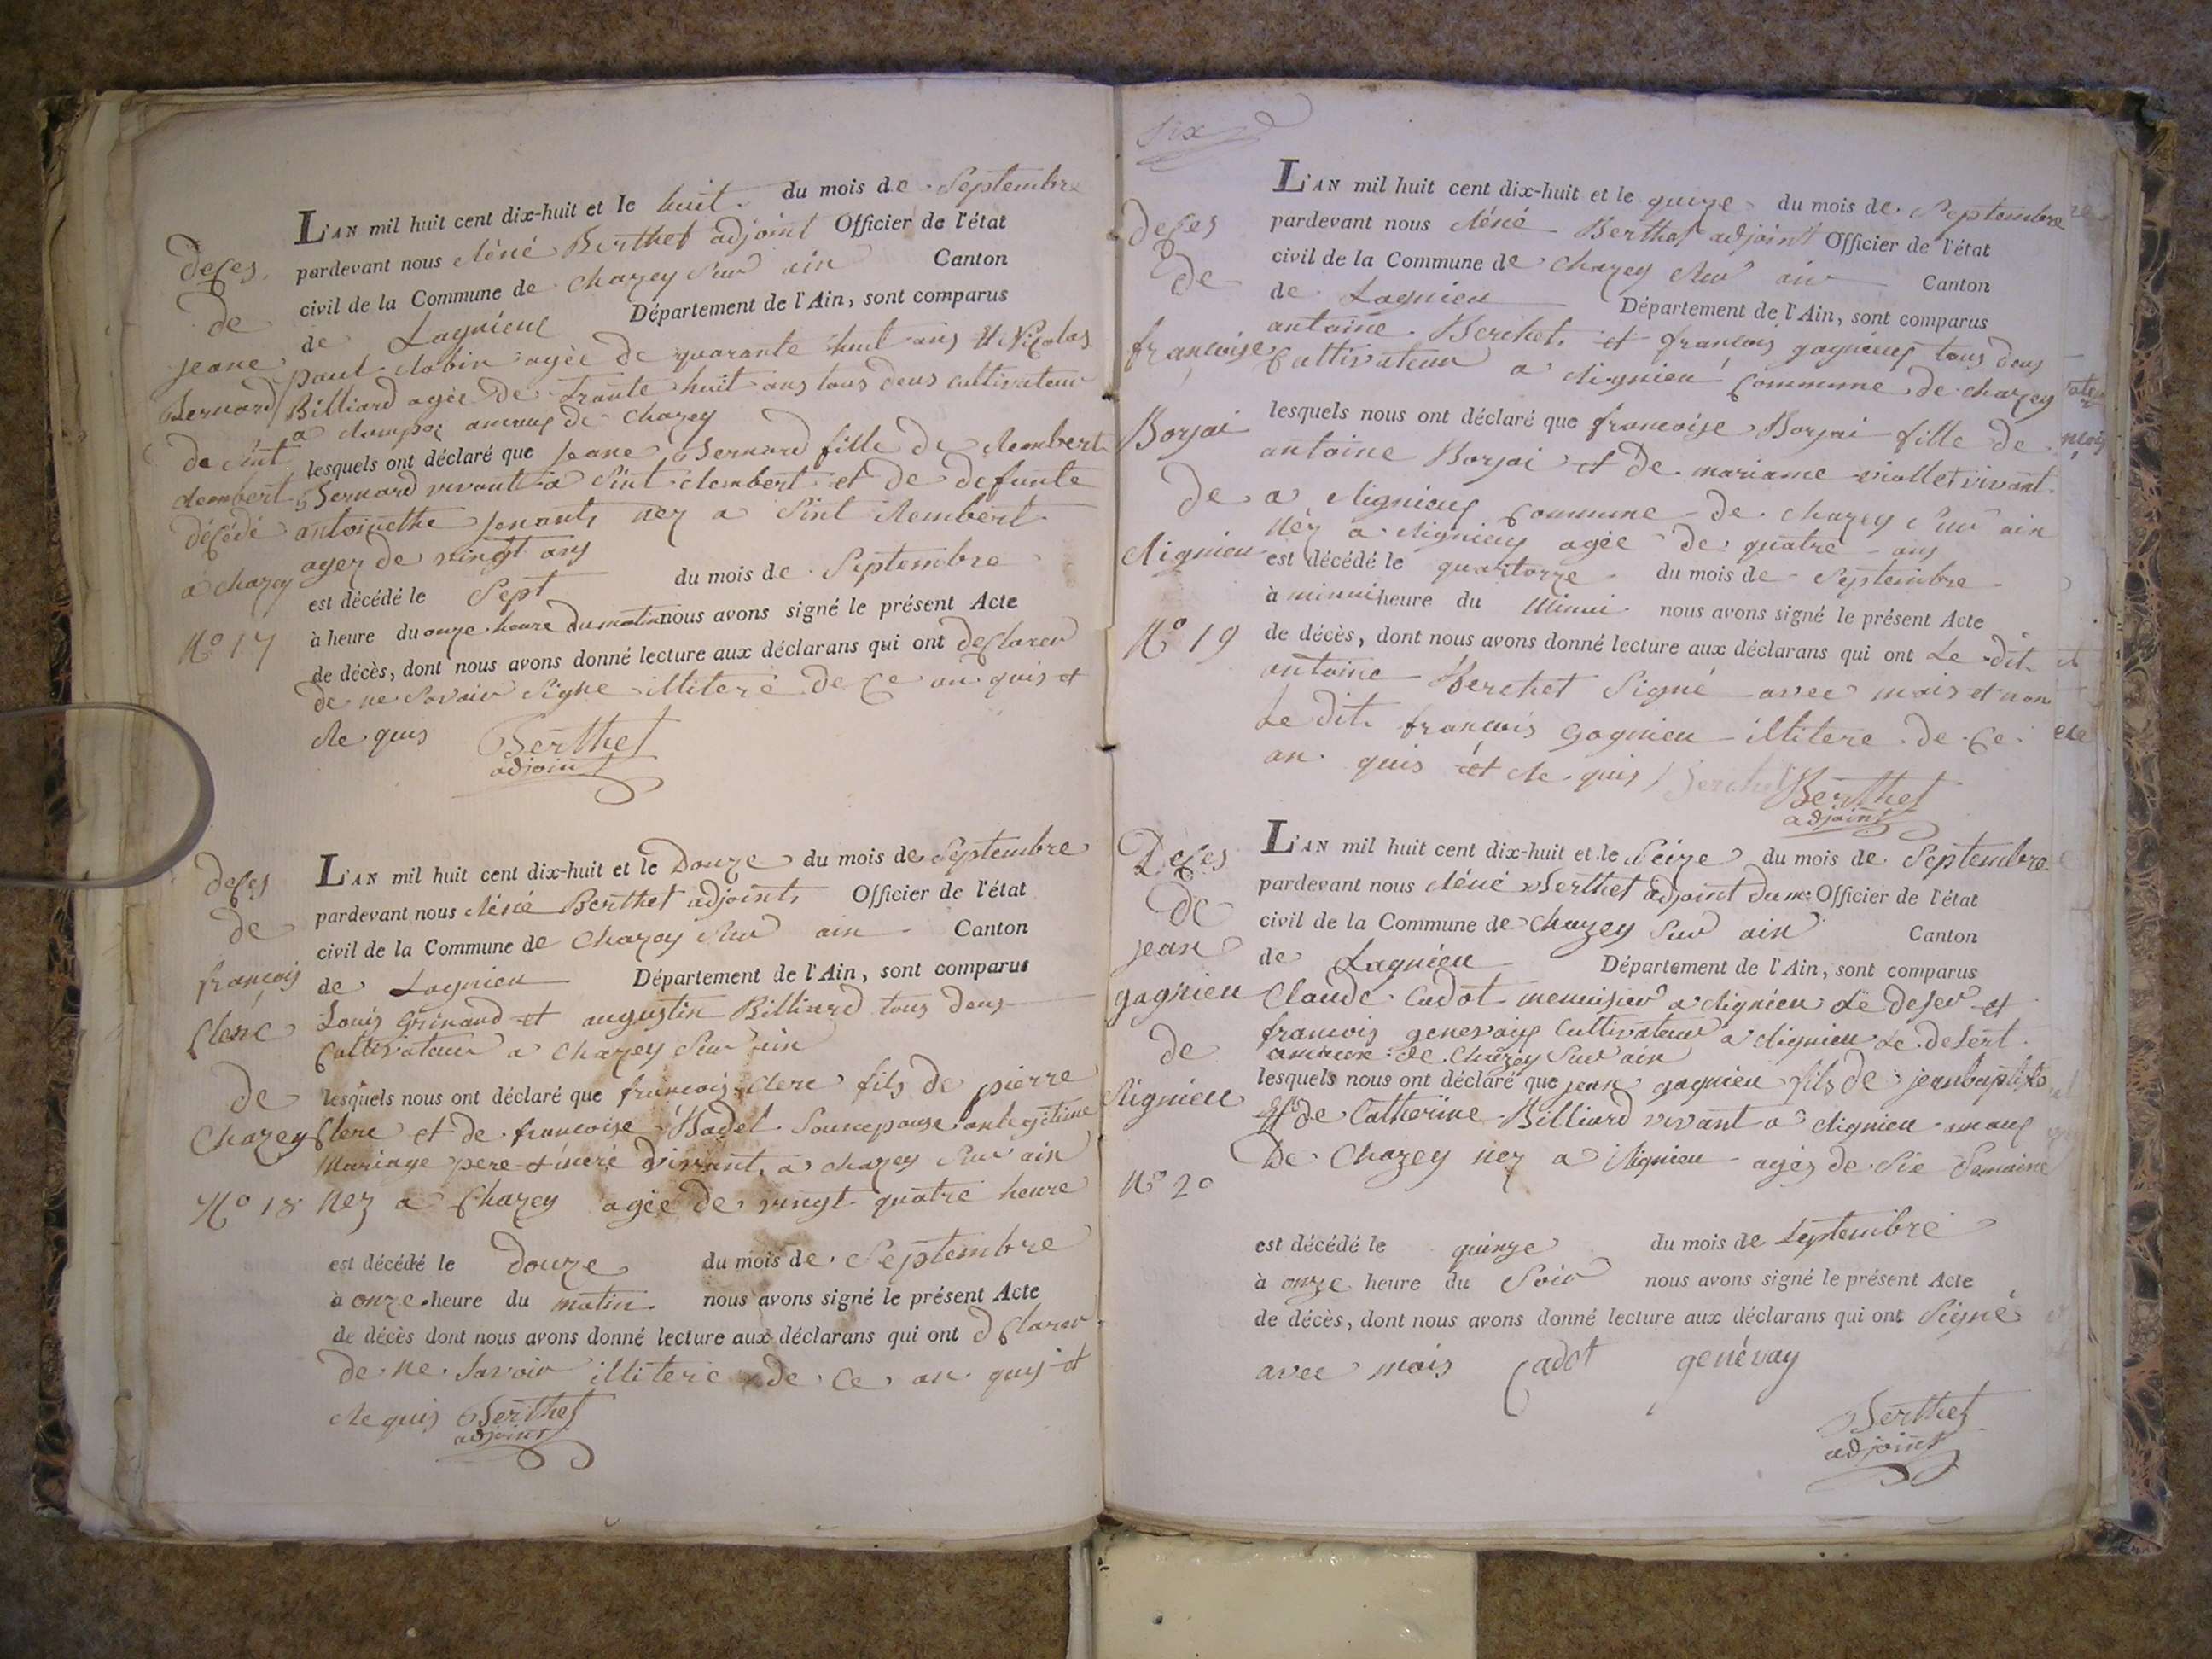 Deces
de
jeane
Bernard
de sint
Rembert
décédé
a chazey
N.o 17
L'AN mil huit cent dix-huit et le huit du mois de Septembre
pardevant nous Réné Berthet adjoint Officier de l'état
civil de la Commune de Chazey Sur ain Canton
de Lagnieu Département de l'Ain, sont comparus
paul Robin agèe de quarante huit ans et Nicolas
Billiard agèe de trante huit ans tous deus cultivateur
a de Chazey
lesquels ont déclaré que jeane Bernard fille de Rembert
Bernard vivant a Sint Rembert et de defunte
antoinethe nez a Sint Rembert
agez de vingt ans
est décédé le Sept du mois de Septembre
à heure du onze heure du matin nous avons signé le présent Acte
de décès, dont nous avons donné lecture aux déclarans qui ont declarer
de ne Savoir Signe illiteré de ce an quis et
Re quis Berthet
adjoint
deces
de
françois
Clere
de
Chazey
N.o 18
L'AN mil huit cent dix-huit et le Douze du mois de Septembre
pardevant nous Réné Berthet adjoint Officier de l'état
civil de la Commune de Chazey Sur ain Canton
de Lagnieu Département de l'Ain, sont comparus
Louis Grinand et augustin Billiard tous deus
Cultivateur a Chazey Sur ain
lesquels nous ont déclaré que francois Clere fils de pierre
Clere et de francoise Badet
Mariage pere et mere vivant a chazey Sur ain
nez a Chazey agèe de vingt quatre heure
est décédé le douze du mois de Septembre
à onze heure du matin nous avons signé le présent Acte
de décès dont nous avons donné lecture aux déclarans qui ont declarer
de ne Savoir illitere de Ce an quis et
Re quis Berthet
adjoint
Six
deces
de
françoise
Borjai
de
Rignieu
N.o 19
L'AN mil huit cent dix-huit et le quinze du mois de Septembre
pardevant nous Réné Berthet adjoint Officier de l'état
civil de la Commune de Chazey Sur ain Canton
de Lagnieu Département de l'Ain, sont comparus
antoine Berchet et francois gagneux tous deus
Cultivateur a Rignieu Commune de chazey
lesquels nous ont déclaré que francoise Borjai fille de
antoine Borjai et de mariane viollet vivant
a Rignieux Commune de chazey Sur ain
Néz a Rignieux agée de quatre ans
est décédé le quartorze du mois de Septembre
à minui heure du Minui nous avons signé le présent Acte
de décès, dont nous avons donné lecture aux déclarans qui ont Le dit
antoine Berchet Signé avec mois et non
Le dit francois Gagnieu illitere de Ce
an quis et Re quis Berchet Berthet
adjoint
Deces
de
jean
gagnieu
de
Rignieu
N.o 20
L'AN mil huit cent dix-huit et le Seize du mois de Septembre
pardevant nous Réné Berthet adjoint du me Officier de l'état
civil de la Commune de Chazey Sur ain Canton
de Lagnieu Département de l'Ain, sont comparus
Claude Cadot menuisier a Rignieu Le deser et
francois genevaix Cultivateur a Rignieu Le desert
de Chazey Sur ain
lesquels nous ont déclaré que jean gagnieu fils de jeanbaptiste
et de Catherine Billiard vivant a Rignieu
De Chazey nez a Rignieu agés de Six Semaine
est décédé le quinze du mois de Septembre
à onze heure du Soir nous avons signé le présent Acte
de décès, dont nous avons donné lecture aux déclarans qui ont Signé
avec mois Cadot genévay
Berthet
adjoint